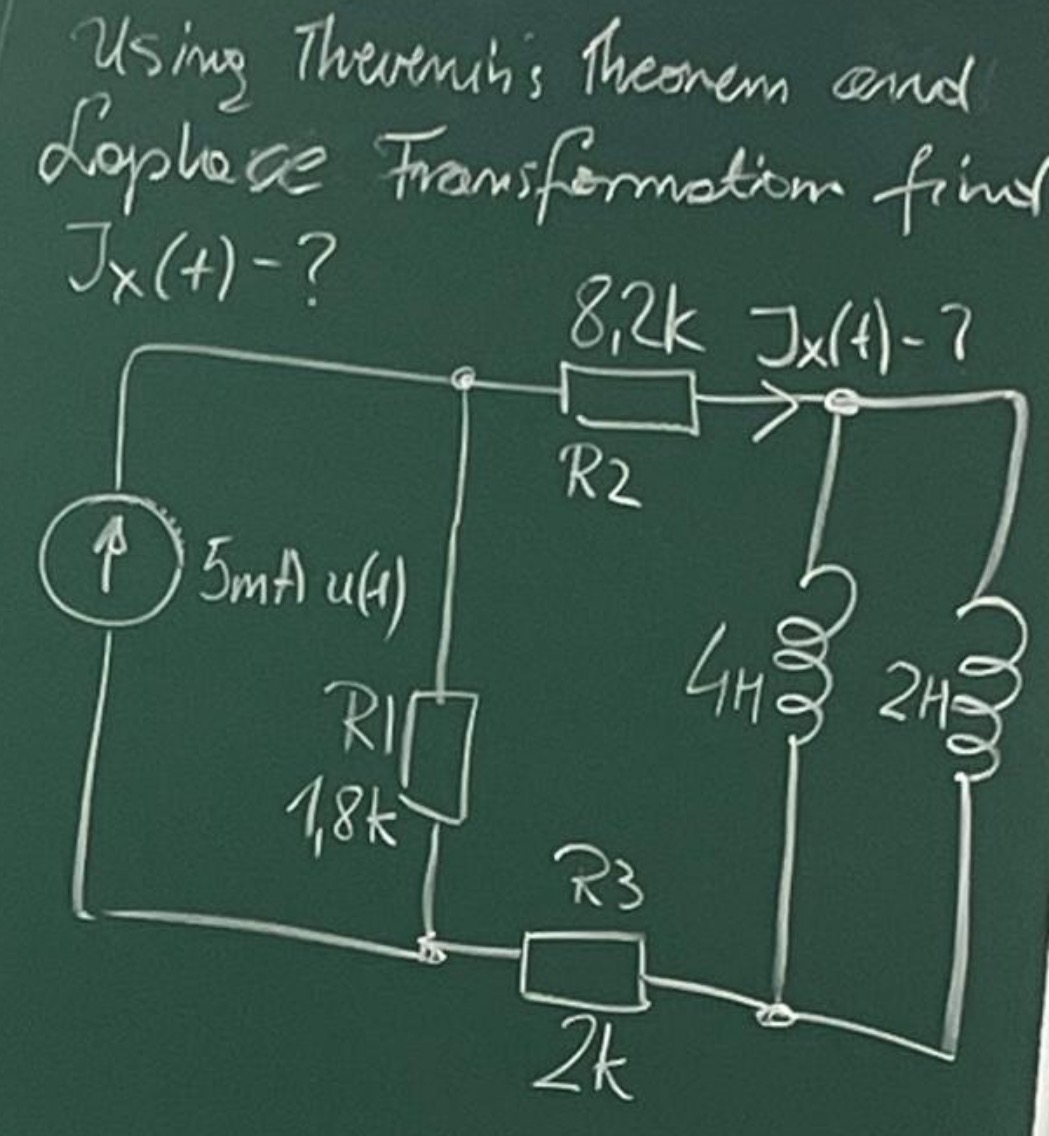 Using Thevenin's Theorem and
Laplace Transformation find
Jx(t)-?
8,2k
Jx(t)-?
R2
5mA u(t)
4H
2H
R1
1,8k
R3
2k